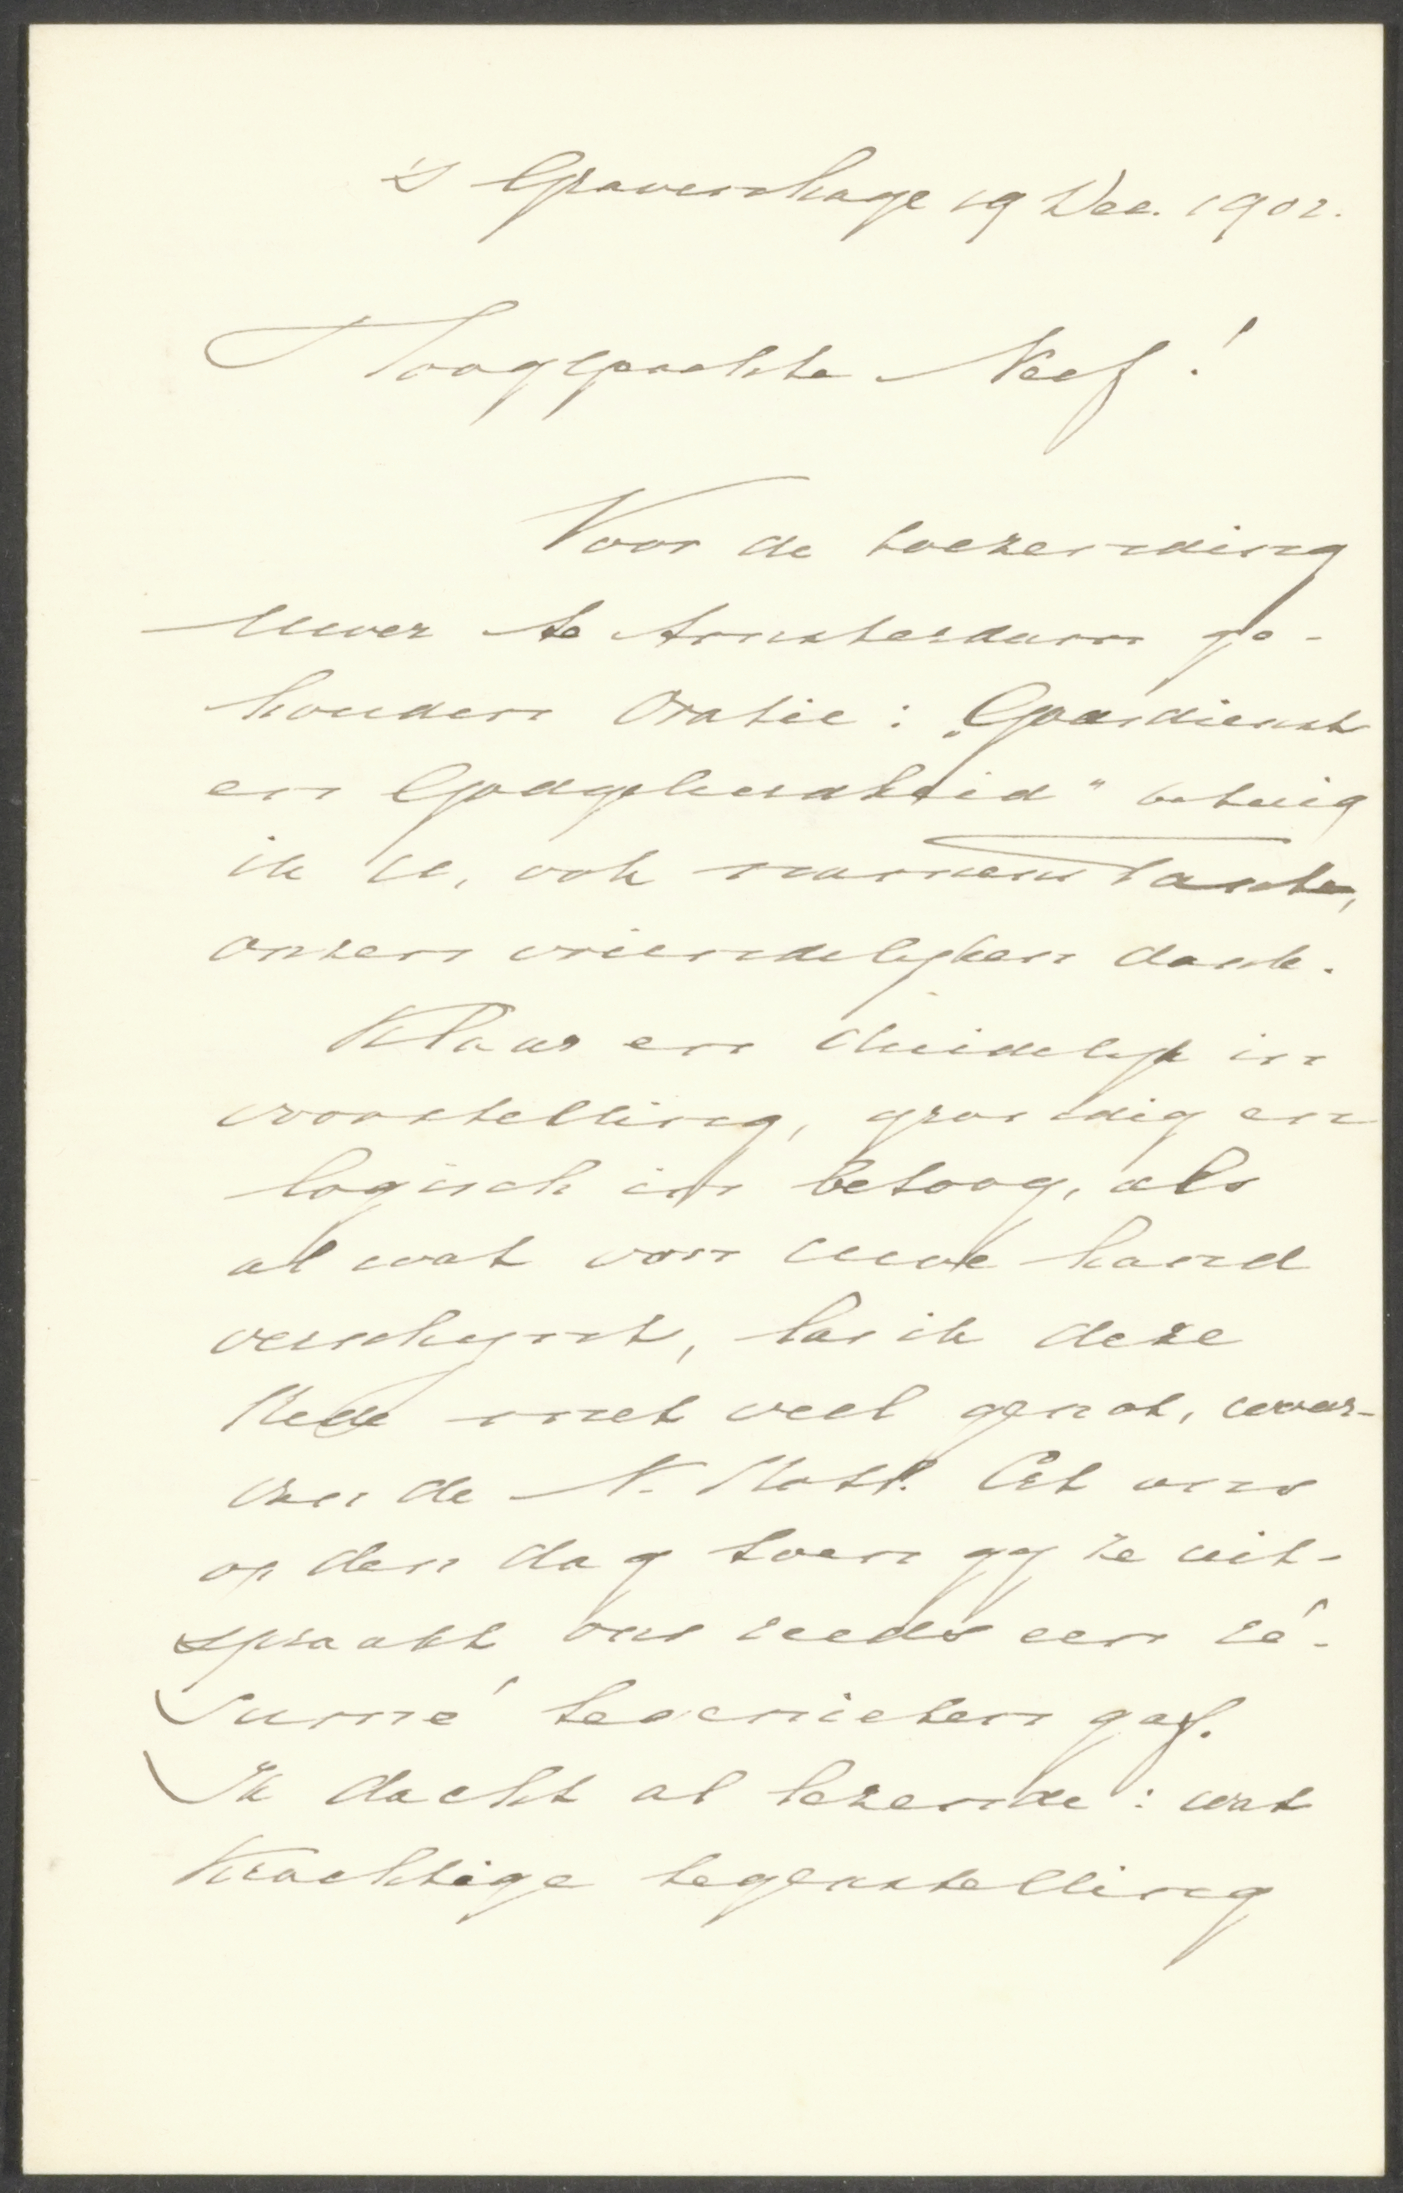 's Gravenhage 19 Dec. 1902.
Hooggeachte Neef!
Voor de toezending
Uwer te Amsterdam ge-
houden Oratie: „Godsdienst
en Godgeleerdheid" betuig
ik U, ook namens Tante,
onzen vriendelijken dank.
Klaar en duidelijk in
voorstelling, grondig en
logisch in betoog, als
al wat van Uwe hand
verschijnt, las ik deze
Rede met veel genot, waar-
van de N. Rott. Ct ons
op den dag toen gij ze uit-
spraakt ons reeds een ré-
sumé te genieten gaf.
Ik dacht al lezende: wat
Krachtige tegenstelling